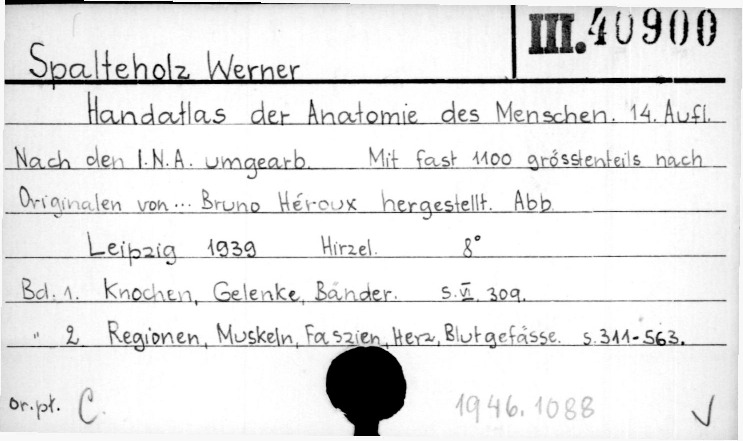 III. 40900
Spalteholz Werner
Handatlas der Anatomie des Menschen. 14. Aufl.
Nach den I.N.A. umgearb. Mit fast 1100 grösstenteils nach
Originalen von... Bruno Héroux hergestellt. Abb.
Leipzig 1939 Hirzel. 8°
Bd. 1. Knochen, Gelenke, Bänder. S. VI, 309.
" 2. Regionen, Muskeln, Faszien, Herz, Blutgefässe. S. 311-563.
or.pł. C. 1946.1088